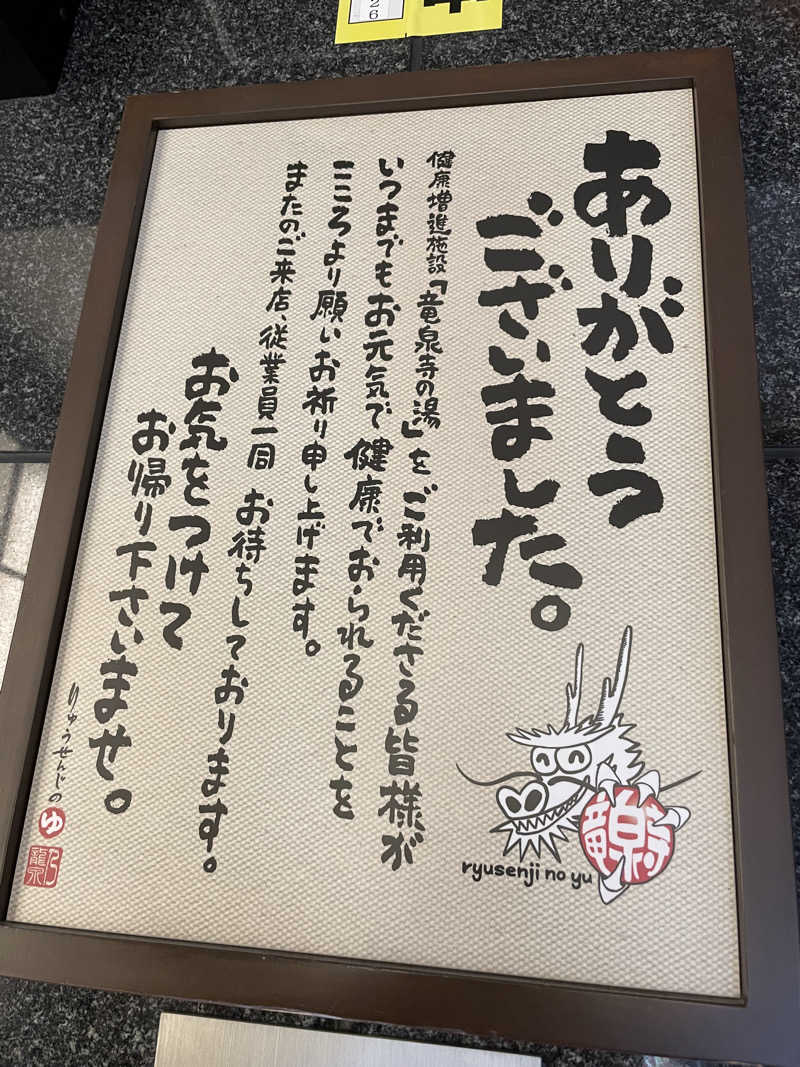 ありがとう
ございました。
健康増進施設「竜泉寺の湯」をご利用くださる皆様が
いつまでもお元気で健康でおられることを
こころより願いお祈り申し上げます。
またのご来店、従業員一同 お待ちしております。
お気をつけて
お帰り下さいませ。
りゅうせんじの
ゆ
竜泉寺
ryusenji no yu
26